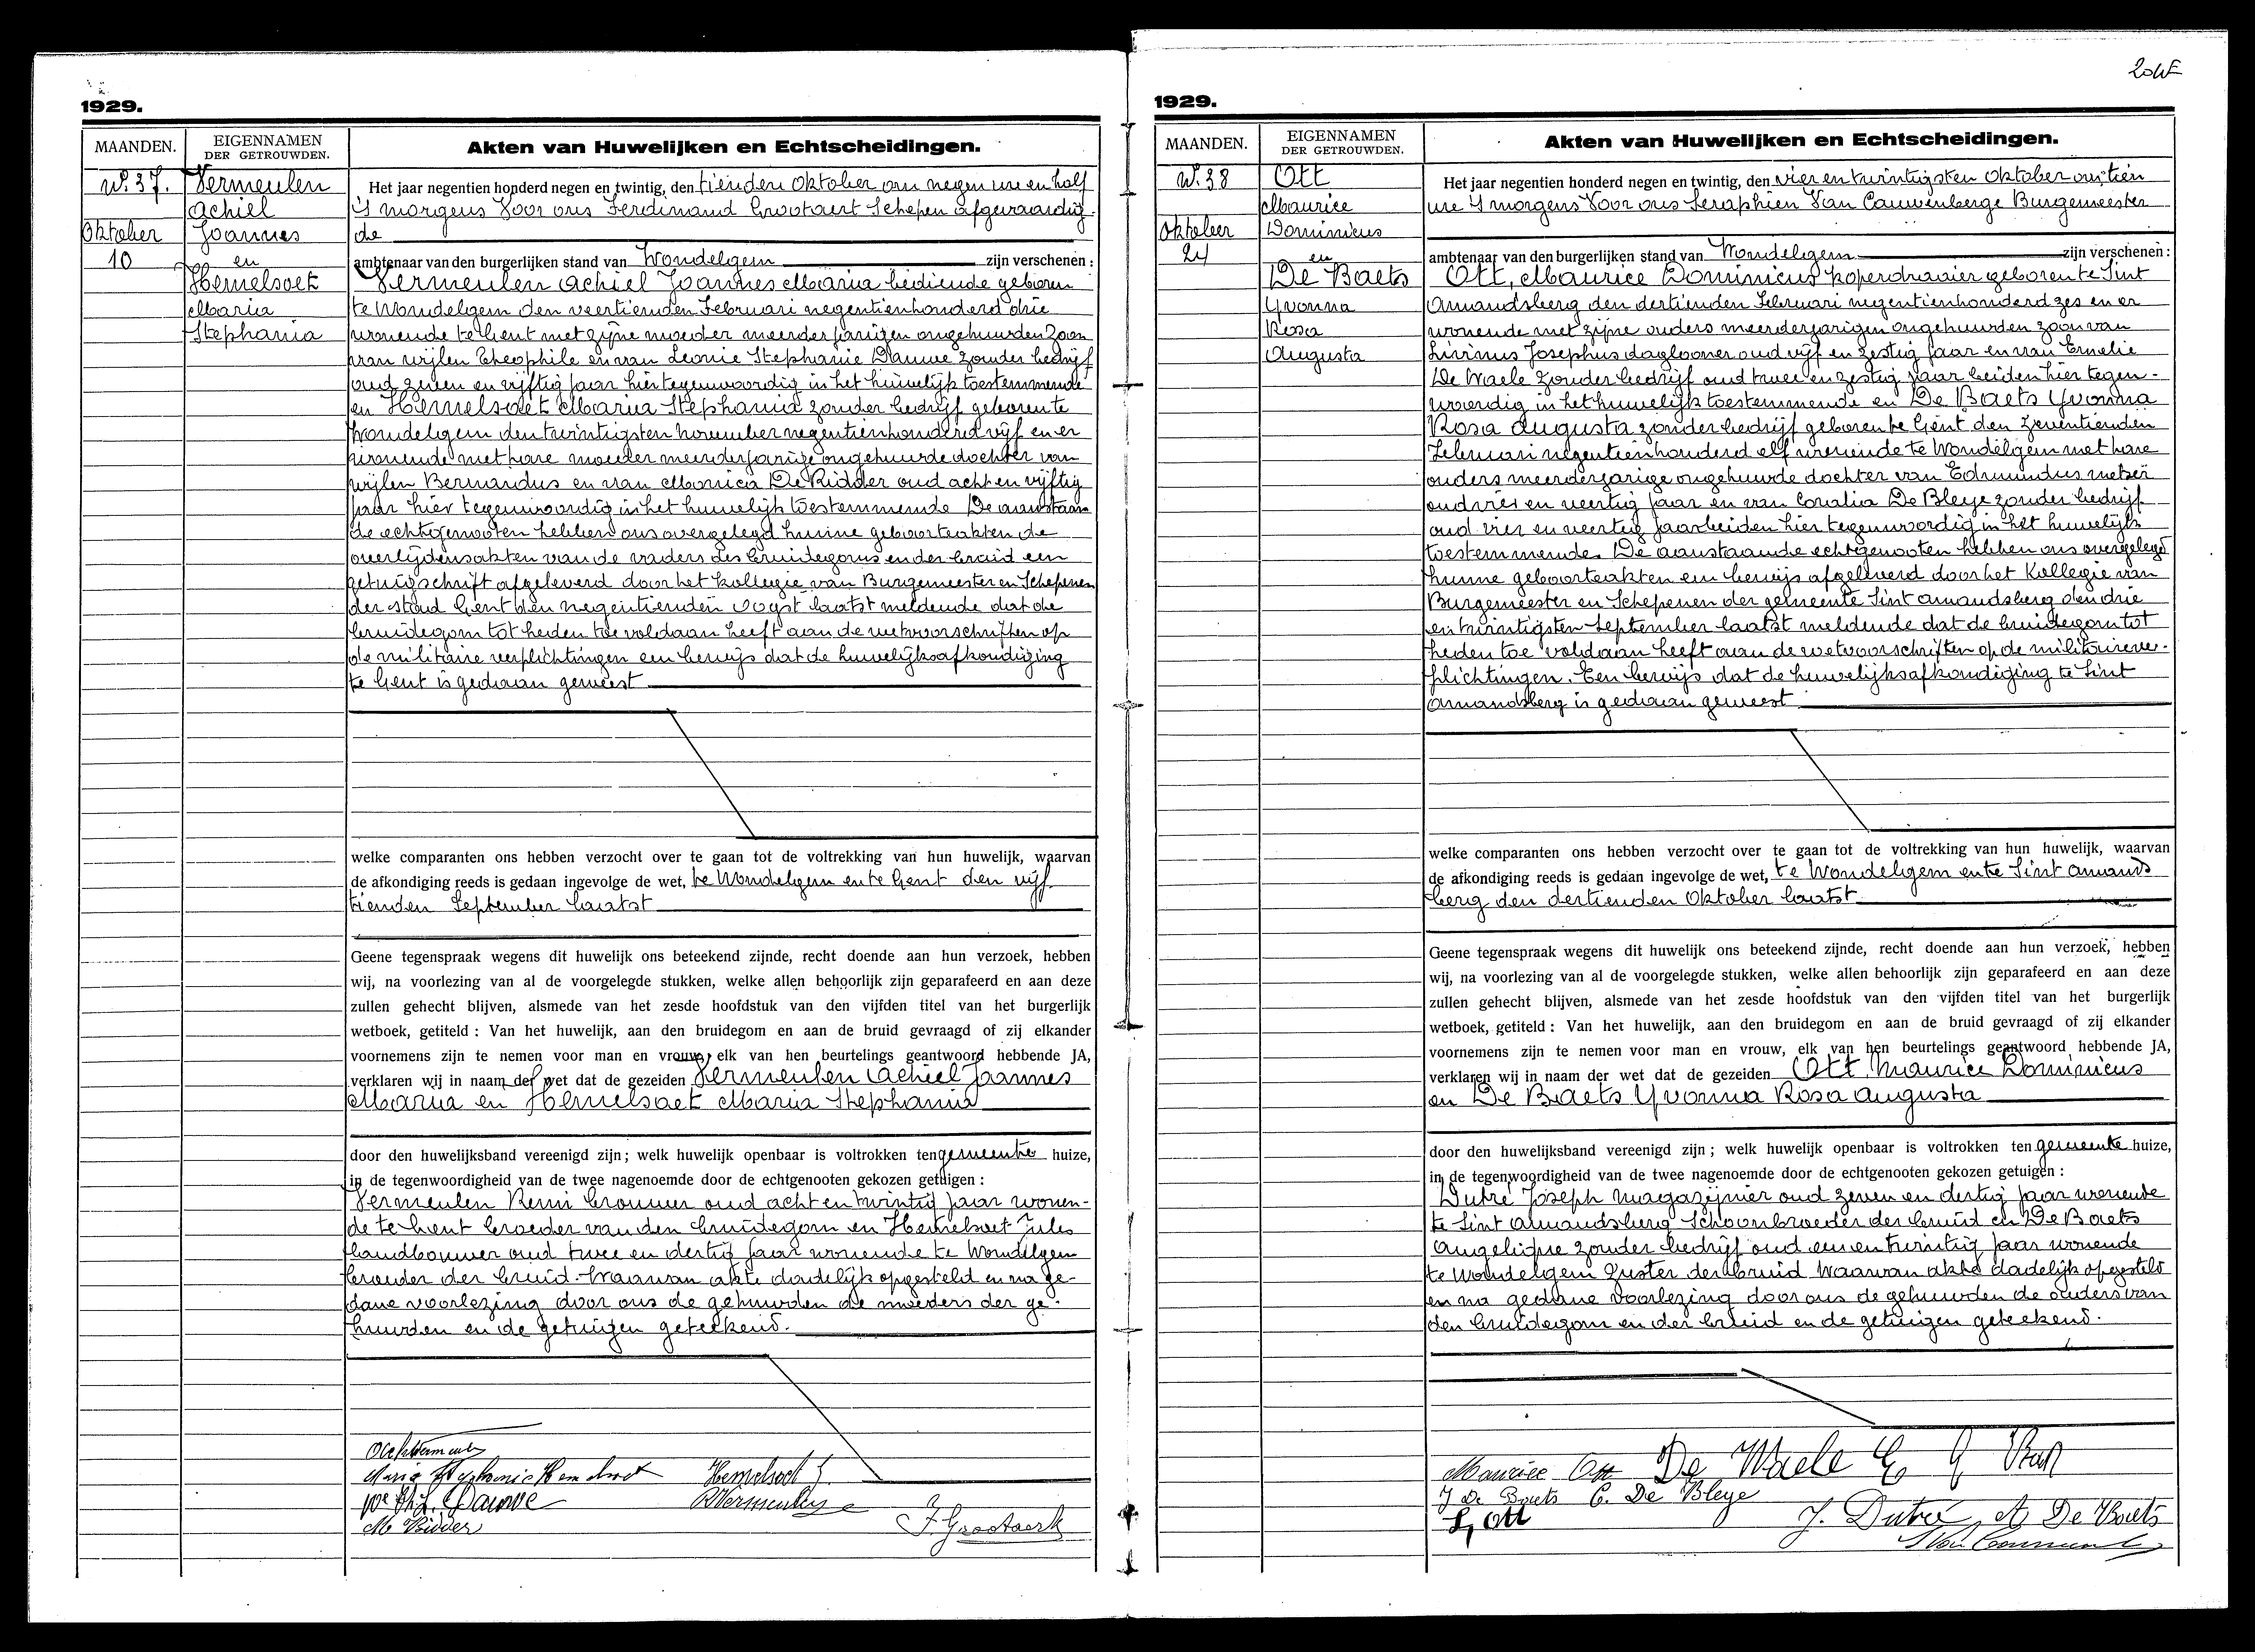 1929.
MAANDEN.
EIGENNAMEN
DER GETROUWDEN.
Akten van Huwelijken en Echtscheidingen.
N. 37.
Oktober
10
Vermeulen
Achiel
Joannes
en
Hemelsoet
Maria
Stephania
Het jaar negentien honderd negen en twintig, den tienden Oktober om negen ure en half
's morgens Voor ons Ferdinand Grootaert Schepen afgevaardig-
de
ambtenaar van den burgerlijken stand van Wondelgem zijn verschenen :
Vermeulen Achiel Joannes Maria bediende geboren
te Wondelgem den veertienden Februari negentienhonderd drie
wonende te Gent met zijne moeder meerderjarigen ongehuwden zoon
van wijlen Theophile en van Leonie Stephanie Dauwe zonder bedrijf
oud zeven en vijftig jaar hier tegenwoordig in het huwelijk toestemmende
en Hemelsoet Maria Stephania zonder bedrijf geboren te
Wondelgem den twintigsten november negentienhonderd vijf en er
wonende met hare moeder meerderjarige ongehuwde dochter van
wijlen Bernardus en van Monica De Ridder oud acht en vijftig
jaar hier tegenwoordig in het huwelijk toestemmende De aanstaan
de echtgenooten hebben ons overgelegd hunne geboorteakten de
overlijdensakten van de vaders des bruidegoms en der bruid een
getuigschrift afgeleverd door het kollegie van Burgemeester en Schepenen
der stad Gent den negentienden oogst laatst meldende dat de
bruidegom tot heden toe voldaan heeft aan de wetvoorschriften op
de militaire verplichtingen een bewijs dat de huwelijksafkondiging
te Gent is gedaan geweest
welke comparanten ons hebben verzocht over te gaan tot de voltrekking van hun huwelijk, waarvan
de afkondiging reeds is gedaan ingevolge de wet, te Wondelgem en te Gent den vijf
tienden September laatst
Geene tegenspraak wegens dit huwelijk ons beteekend zijnde, recht doende aan hun verzoek, hebben
wij, na voorlezing van al de voorgelegde stukken, welke allen behoorlijk zijn geparafeerd en aan deze
zullen gehecht blijven, alsmede van het zesde hoofdstuk van den vijfden titel van het burgerlijk
wetboek, getiteld : Van het huwelijk, aan den bruidegom en aan de bruid gevraagd of zij elkander
voornemens zijn te nemen voor man en vrouw, elk van hen beurtelings geantwoord hebbende JA,
verklaren wij in naam der wet dat de gezeiden Vermeulen Achiel Joannes
Maria en Hemelsoet Maria Stephania
door den huwelijksband vereenigd zijn ; welk huwelijk openbaar is voltrokken ten gemeente huize,
in de tegenwoordigheid van de twee nagenoemde door de echtgenooten gekozen getuigen :
Vermeulen Remi brouwer oud acht en twintig jaar wonen-
de te Gent broeder van den bruidegom en Hemelsoet Jules
landbouwer oud twee en dertig jaar wonende te Wondelgem
broeder der bruid. Waarvan akte dadelijk opgesteld en na ge-
dane voorlezing door ons de gehuwden de moeders der ge-
huwden en de getuigen geteekend.
Maria Stephanie Hemelsoet Hemelsoet J.
We L. Dauwe R Vermeulen
M Ridder F. Grootaerk
204
1929.
MAANDEN.
EIGENNAMEN
DER GETROUWDEN.
Akten van Huwelijken en Echtscheidingen.
N. 38
Oktober
24
Ott
Maurice
Dominicus
en
De Baets
Yvonna
Rosa
Augusta
Het jaar negentien honderd negen en twintig, den vier en twintigsten Oktober om tien
ure 's morgens Voor ons Seraphien Van Cauwenberge Burgemeester
ambtenaar van den burgerlijken stand van Wondelgem zijn verschenen :
Ott, Maurice Dominicus koperdraaier geboren te Sint
Amandsberg den dertienden Februari negentienhonderd zes en er
wonende met zijne ouders meerderjarigen ongehuwden zoon van
Livinus Josephus daglooner oud vijf en zestig jaar en van Emelie
De Waele zonder bedrijf oud twee en zestig jaar beiden hier tegen-
woordig in het huwelijk toestemmende en De Baets Yvonna
Rosa Augusta zonder bedrijf geboren te Gent den zeventienden
Februari negentienhonderd elf wonende te Wondelgem met hare
ouders meerderjarige ongehuwde dochter van Edmundus metser
oud vier en veertig jaar en van Coralia De Bleye zonder bedrijf
oud vier en veertig jaar beiden hier tegenwoordig in het huwelijk
toestemmende. De aanstaande echtgenooten hebben ons overgelegd
hunne geboorteakten een bewijs afgeleverd door het Kollegie van
Burgemeester en Schepenen der gemeente Sint amandsberg den drie
en twintigsten September laatst meldende dat de bruidegom tot
heden toe voldaan heeft aan de wetvoorschriften op de militaire ver-
plichtingen. Een bewijs dat de huwelijksafkondiging te Sint
Amandsberg is gedaan geweest
welke comparanten ons hebben verzocht over te gaan tot de voltrekking van hun huwelijk, waarvan
de afkondiging reeds is gedaan ingevolge de wet, te Wondelgem en te Sint Amands
berg den dertienden Oktober laatst
Geene tegenspraak wegens dit huwelijk ons beteekend zijnde, recht doende aan hun verzoek, hebben
wij, na voorlezing van al de voorgelegde stukken, welke allen behoorlijk zijn geparafeerd en aan deze
zullen gehecht blijven, alsmede van het zesde hoofdstuk van den vijfden titel van het burgerlijk
wetboek, getiteld : Van het huwelijk, aan den bruidegom en aan de bruid gevraagd of zij elkander
voornemens zijn te nemen voor man en vrouw, elk van hen beurtelings geantwoord hebbende JA,
verklaren wij in naam der wet dat de gezeiden Ott Maurice Dominicus
en De Baets Yvonna Rosa Augusta
door den huwelijksband vereenigd zijn ; welk huwelijk openbaar is voltrokken ten gemeente huize,
in de tegenwoordigheid van de twee nagenoemde door de echtgenooten gekozen getuigen :
Dutré Joseph magazijnier oud zeven en dertig jaar wonende
te Sint Amandsberg Schoonbroeder der bruid en De Baets
Angelique zonder bedrijf oud een en twintig jaar wonende
te Wondelgem Zuster der bruid Waarvan akte dadelijk opgesteld
en na gedane voorlezing door ons de gehuwden de ouders van
den bruidegom en der bruid en de getuigen geteekend.
Maurice Ott De Waele E
Y De Baets C. De Bleye
L, Ott J. Dutré A De Baets